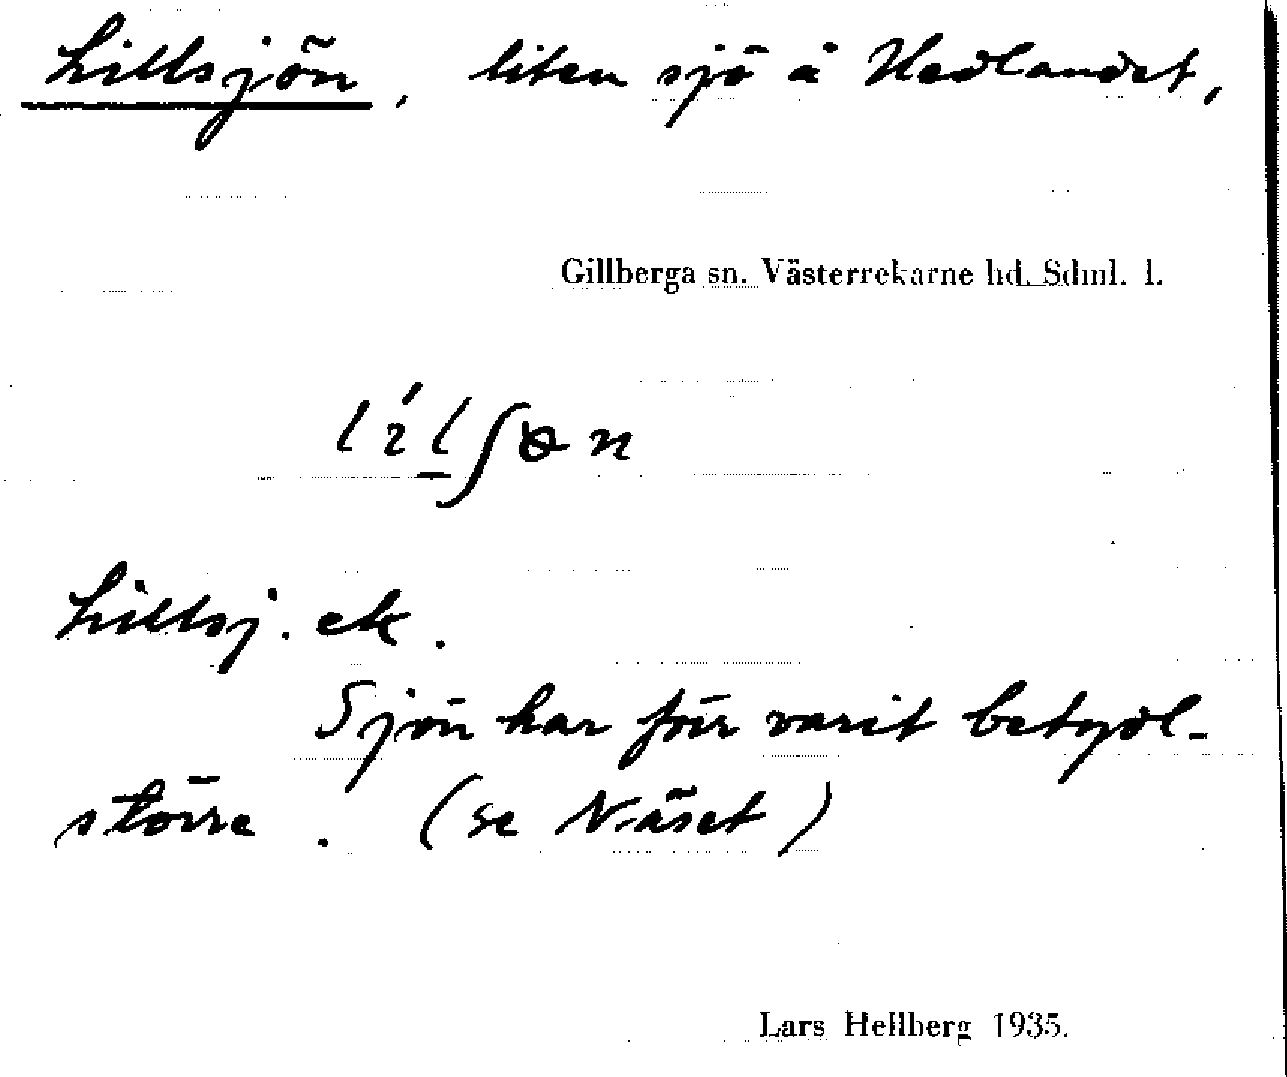 Lillsjön, liten sjö å Hedlandet,
Gillberga sn. Västerrekarne hd. Sdml. l.
Lillsj. ek.
Sjön har förr varit betydl-
större. (se Näset)
Lars Hellberg 1935.